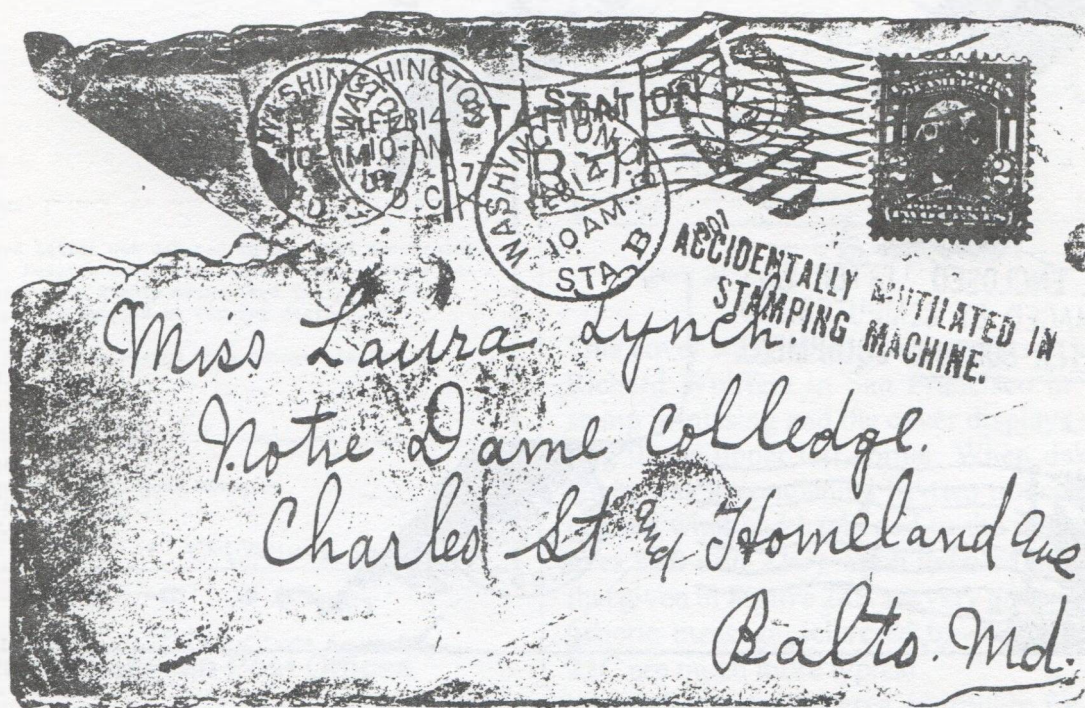 WASHINGTON
FEB 14
10-AM
D.C.
STATION
B
WASHINGTON, D.C.
FEB 14
10 AM
1907
STA. B
2
ACCIDENTALLY MUTILATED IN
STAMPING MACHINE.
Miss Laura Lynch.
Notre Dame Colledge.
Charles St and Homeland Ave
Balto. Md.